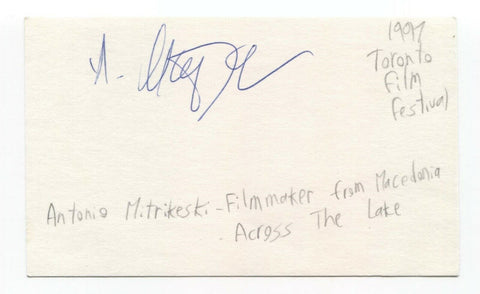 1997
Toronto
Film
Festival
Antonio Mitrikeski - Filmmaker from Macedonia
- Across The Lake